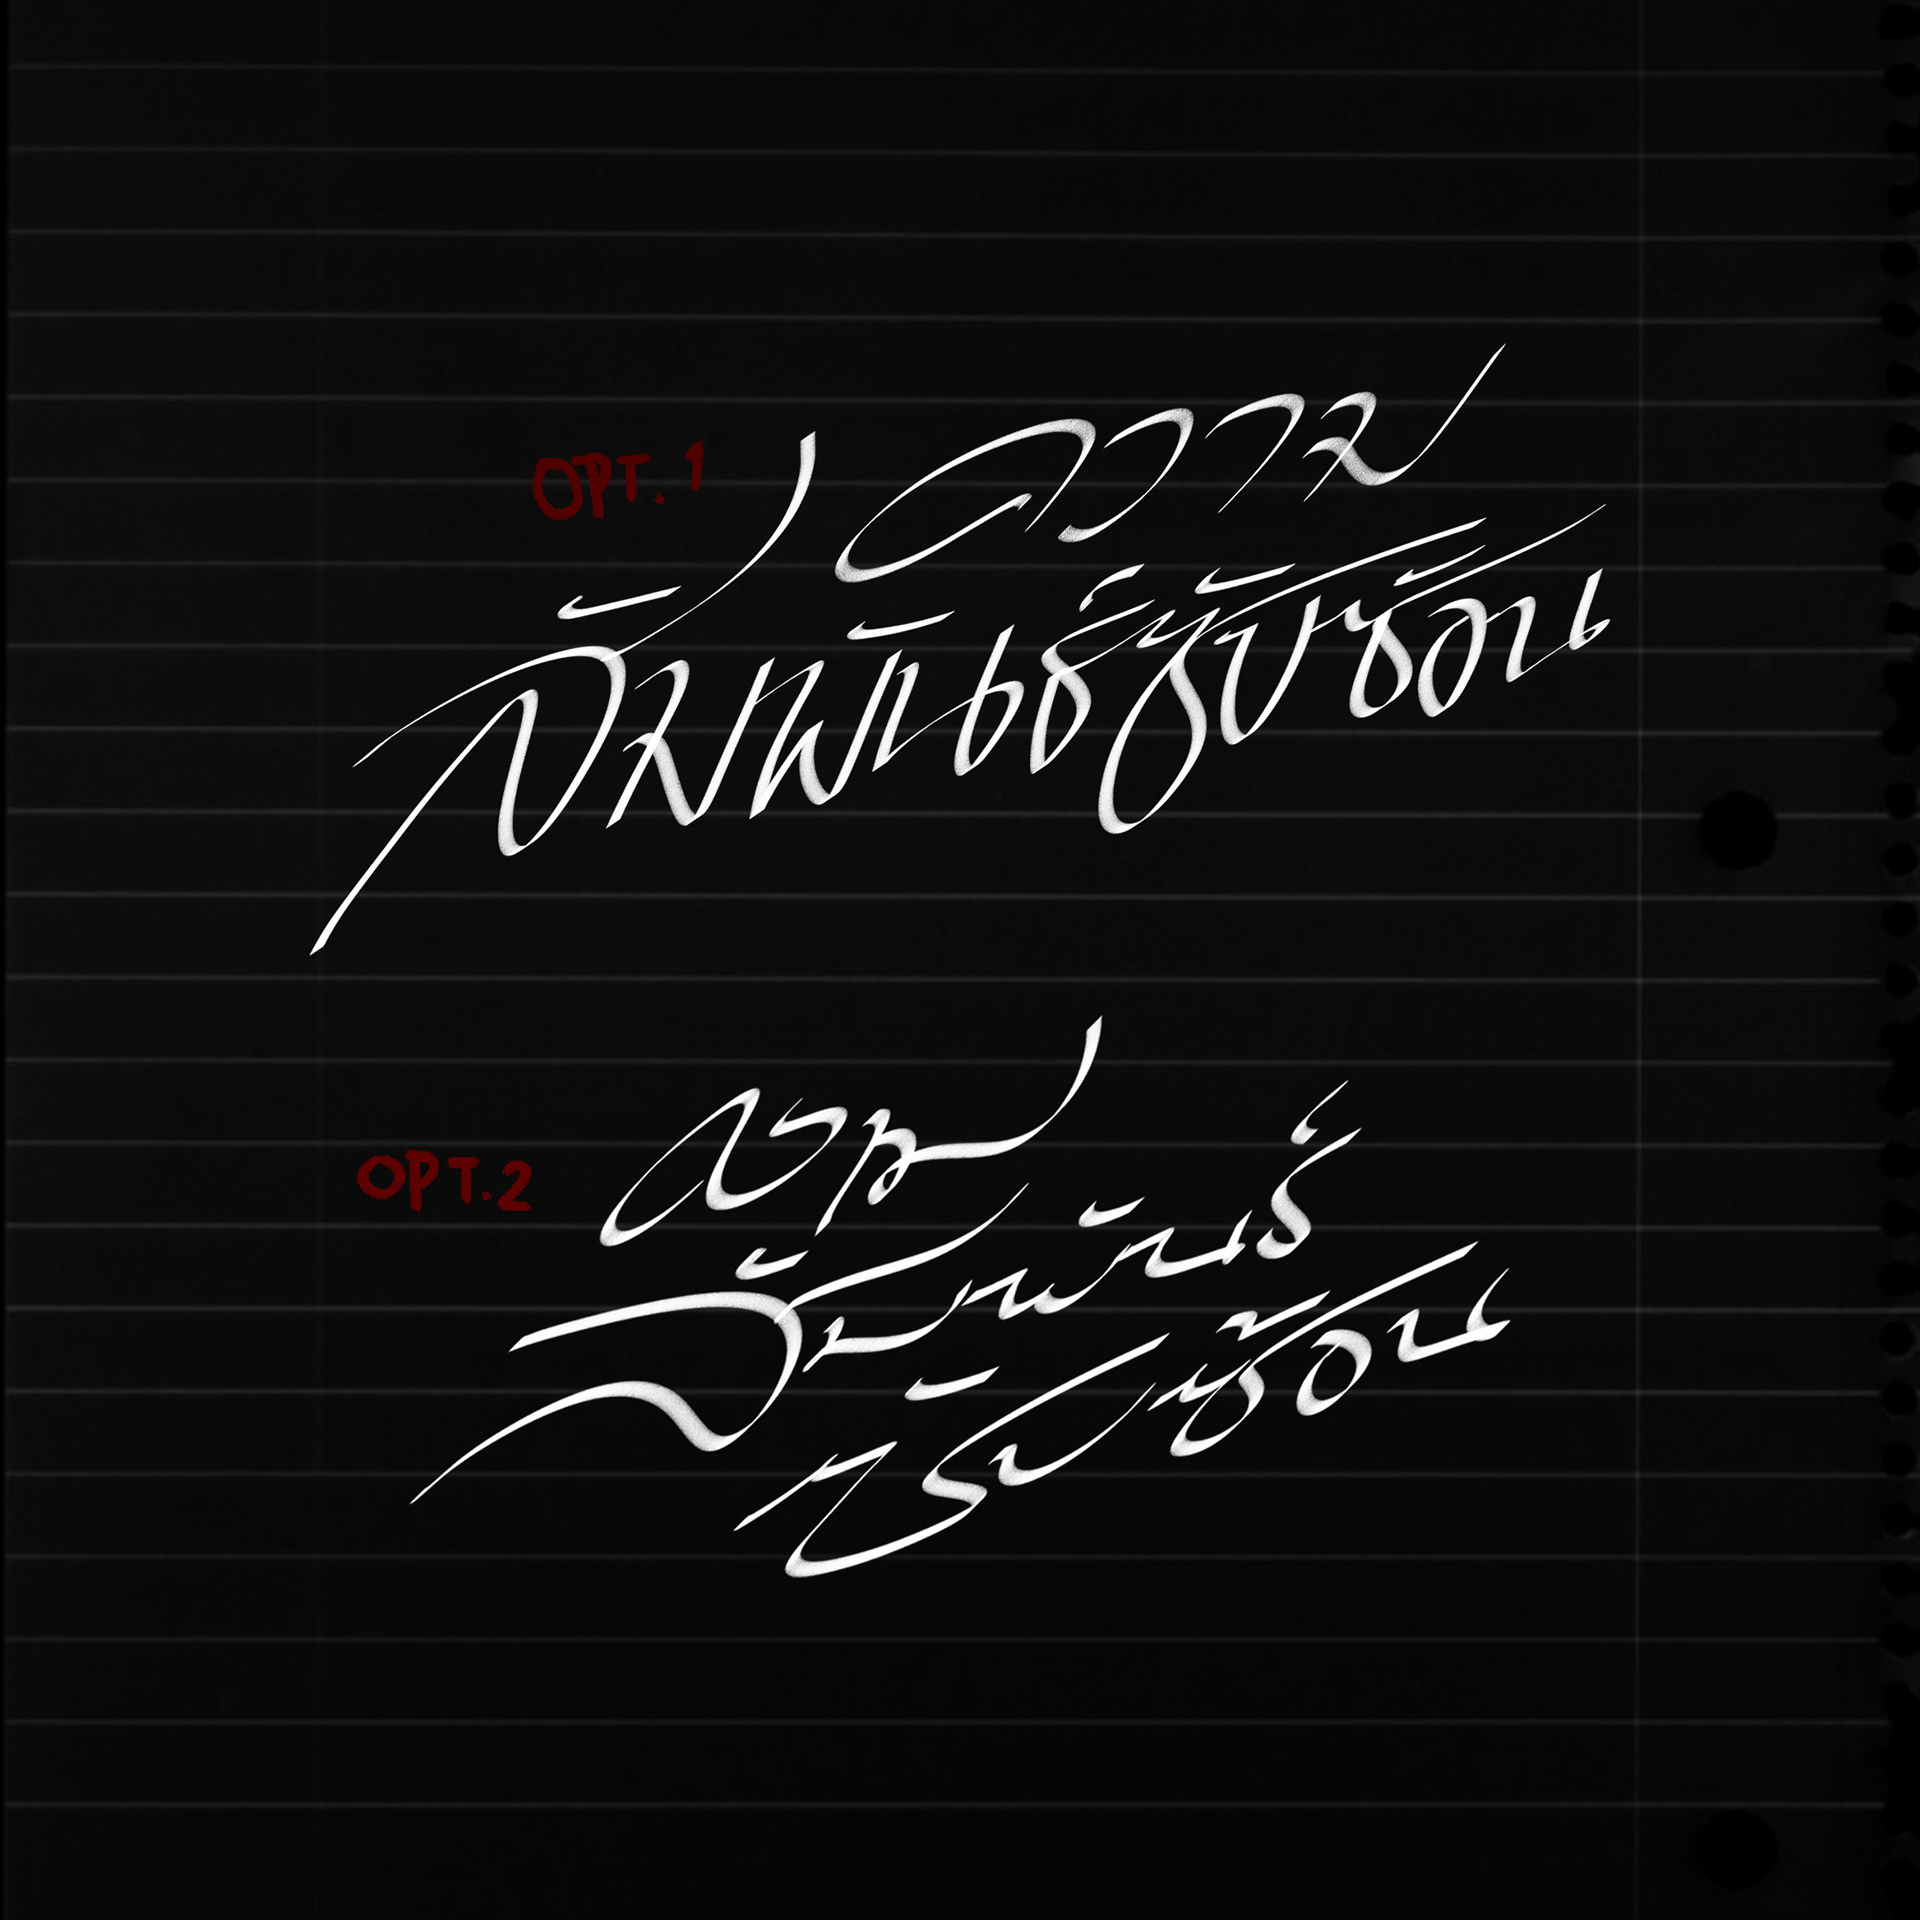 OPT. 1
ความ
สัมพันธ์ซับซ้อน
OPT.2
ความ
สัมพันธ์
ซับซ้อน